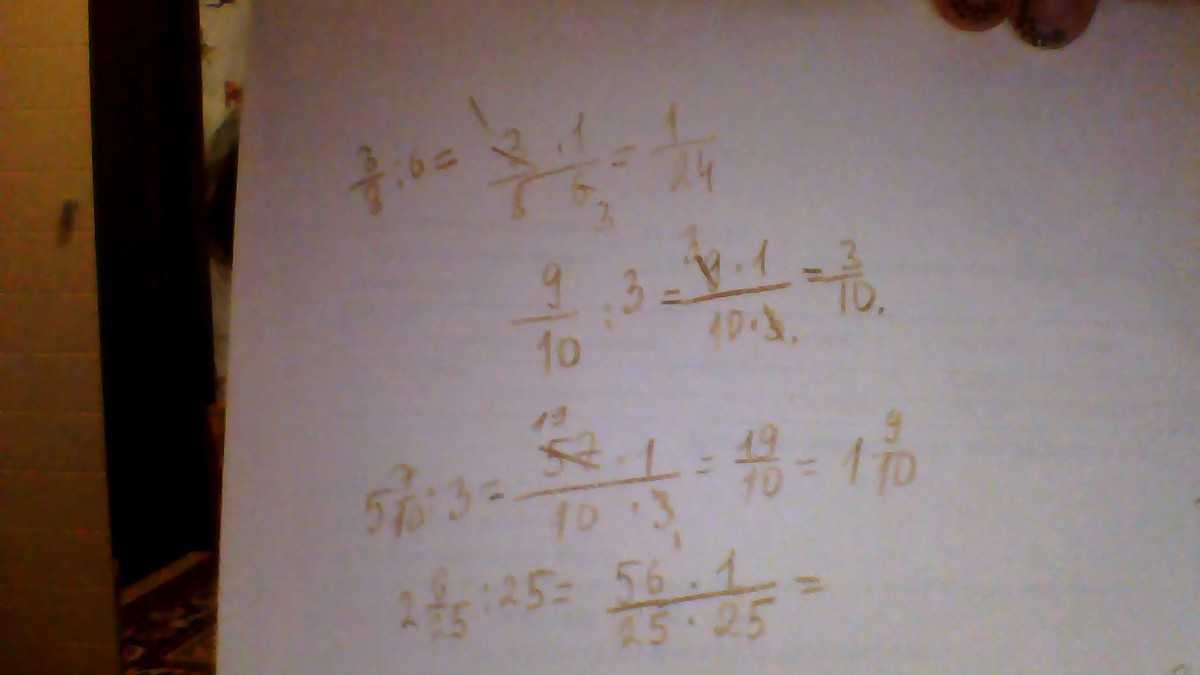 3/8 : 6 = 2 · 1 / 8 6 3 = 1/24
9/10 : 3 = 3 9 · 1 / 10 · 3 = 3/10.
5 7/10 : 3 = 19 57 · 1 / 10 · 3 1 = 19/10 = 1 9/10
2 6/25 : 25 = 56 · 1 / 25 · 25 =